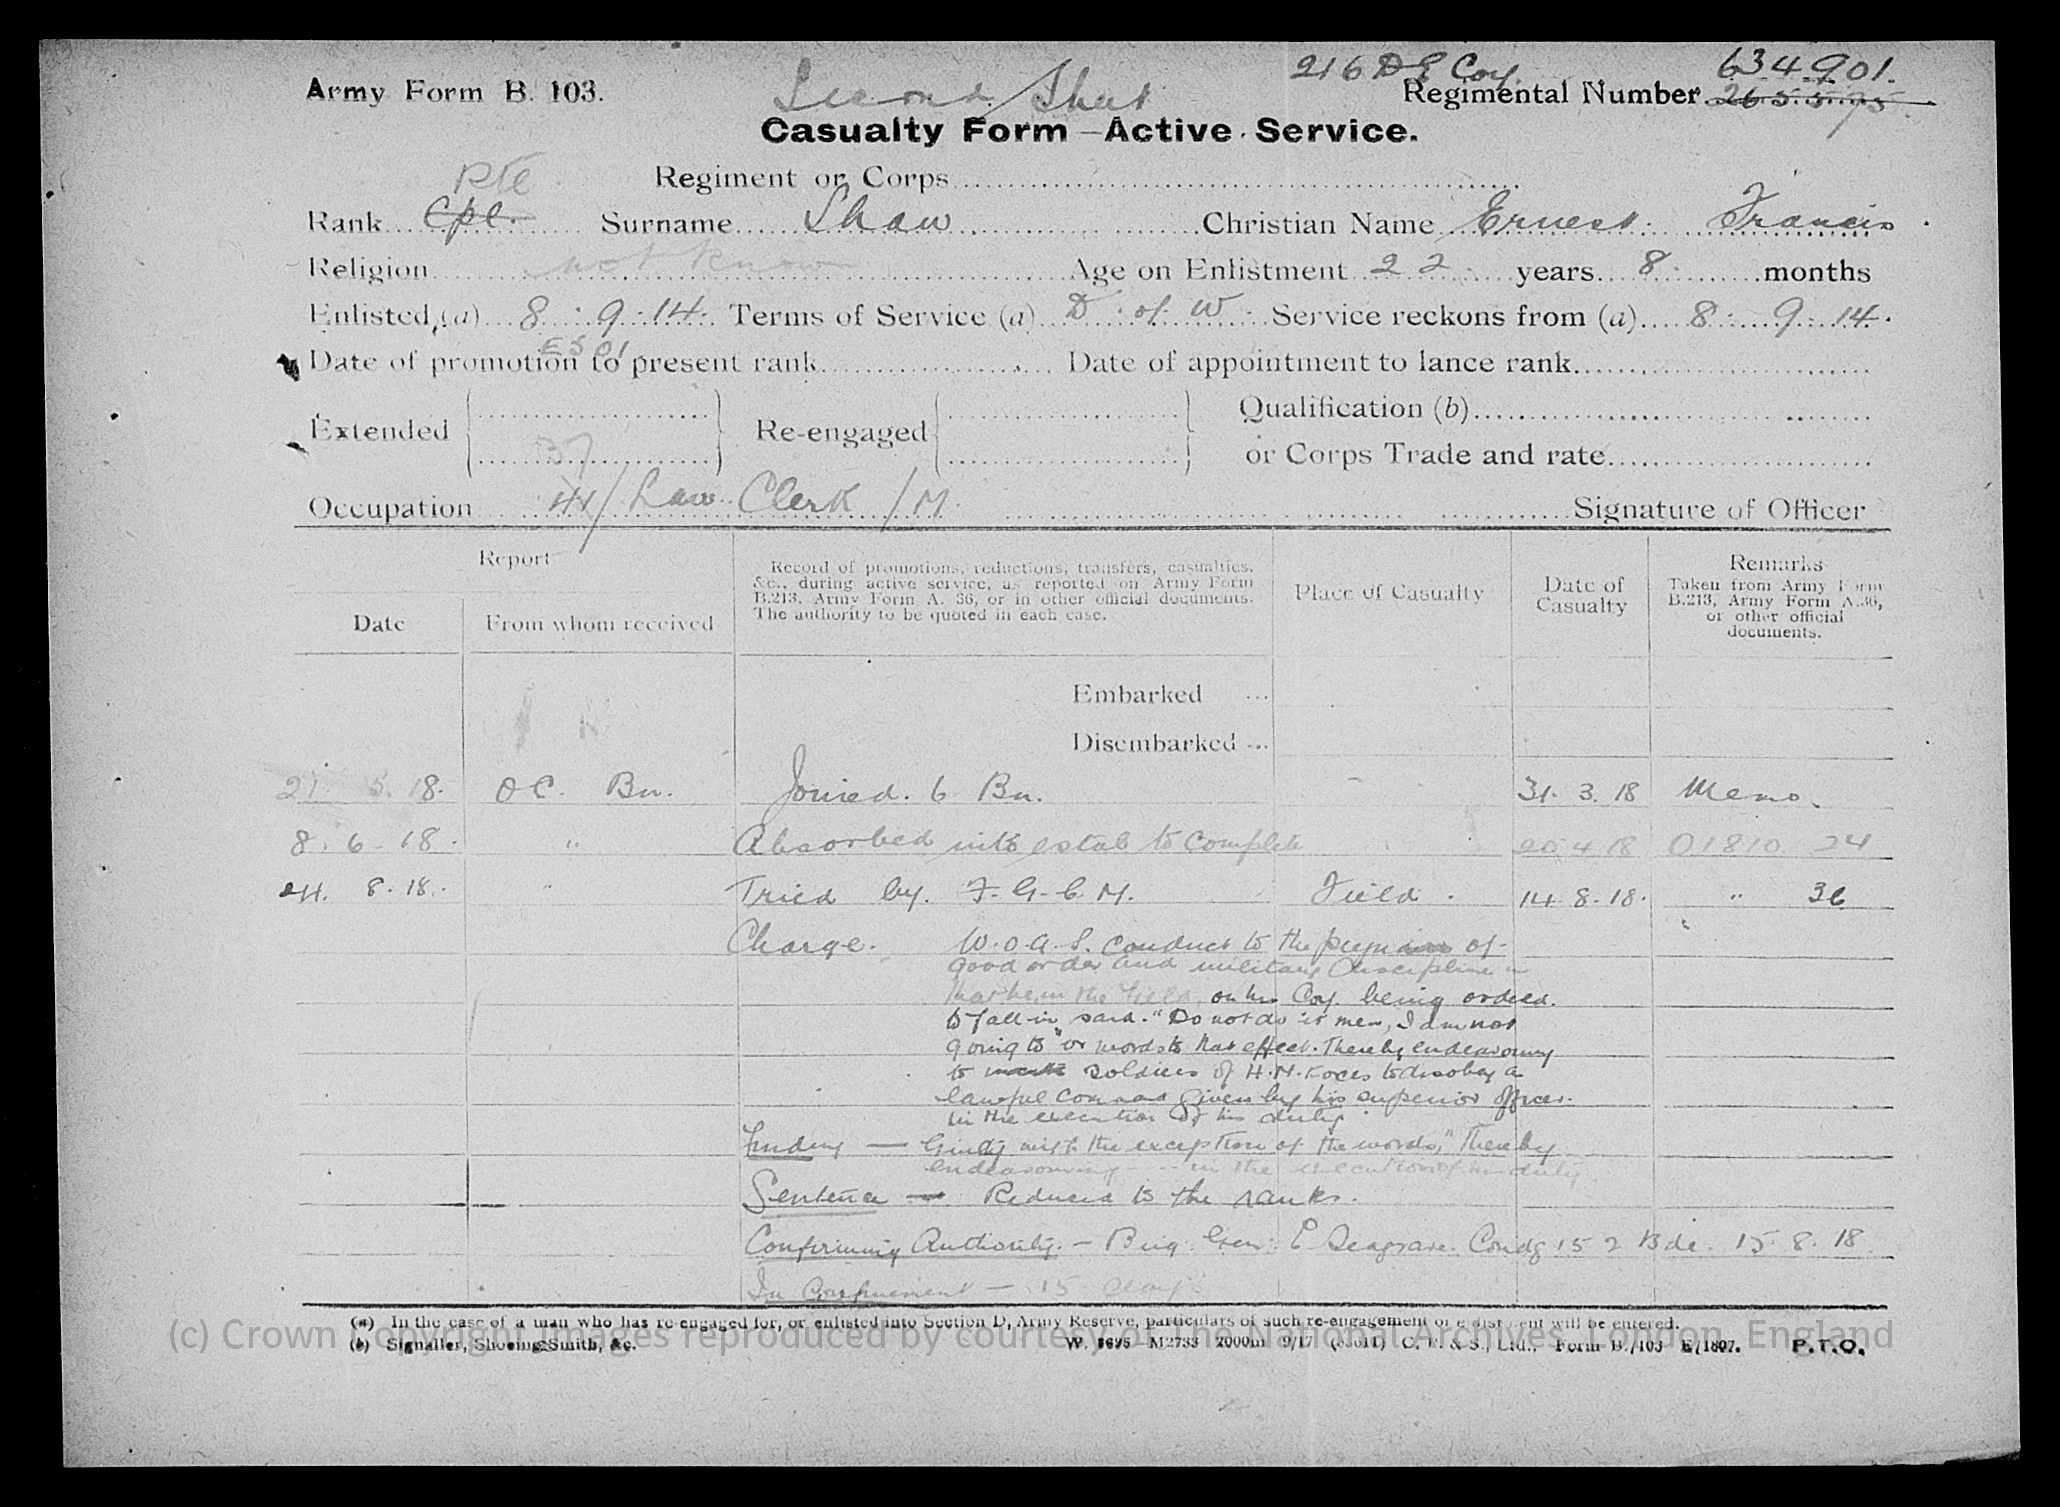 216 D E Coy. 634901.
Army Form B. 103. Second Sheet Regimental Number 265575.
Casualty Form—Active Service.
Pte Regiment or Corps
Rank Cpl. Surname Shaw Christian Name Ernest Francis
Religion not know Age on Enlistment 22 years 8 months
Enlisted (a) 8.9.14. Terms of Service (a) D. of W. Service reckons from (a) 8.9.14.
ES 01
Date of promotion to present rank Date of appointment to lance rank
Extended Re-engaged Qualification (b)
37 or Corps Trade and rate
Occupation 41/Law Clerk/M. Signature of Officer
Report
Date From whom received
Record of promotions, reductions, transfers, casualties,
&c., during active service, as reported on Army Form
B.213, Army Form A. 36, or in other official documents.
The authority to be quoted in each case.
Place of Casualty
Date of
Casualty
Remarks
Taken from Army Form
B.213, Army Form A.36,
or other official
documents.
Embarked ...
Disembarked ...
21 5.18. OC. Bn. Joined. 6 Bn. 31.3.18 Memo.
8.6.18. " Absorbed into estab to complete 20 4 18 O1810 24
24.8.18. " Tried by. F.G.C.M. Field. 14.8.18. " 36
Charge. W.O.A.S. conduct to the prejudice of
good order and military discipline in
that he in the Field, on his Coy. being ordered.
to fall-in said. "Do not do it men, I am not
going to" or words to that effect. Thereby endeavouring
to soldiers of H.M. Forces to disobey a
lawful command given by his superior officer.
in the execution of his duty.
Finding — Guilty with the exception of the words, "Thereby
endeavouring - - - in the execution of his duty
Sentence — Reduced to the ranks.
Confirming Authority. — Brig. Gen. E Seagrave. Comdg 152 Bde. 15.8.18
In Confinement — 15 days
(a) In the case of a man who has re-engaged for, or enlisted into Section D, Army Reserve, particulars of such re-engagement or enlistment will be entered.
(b) Signaller, Shoeing-Smith, &c. W. 8695—M2733 2000m 9/17 C. P. & S., Ltd., Form B./103 E/1807. P.T.O.
(c) Crown Copyright Images reproduced by courtesy of The National Archives, London, England